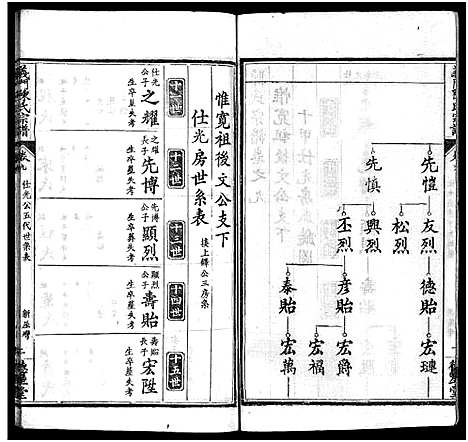 先愷
友烈
德貽
宏璉
松烈
先慎
興烈
丕烈
彦貽
宏爵
宏福
泰貽
宏萬
惟寬祖後文公支下
仕光房世系表
接上鐸公三房系
十一世
仕光公子
之耀
生卒葬失考
十二世
之耀長子
先博
生卒葬失考
十三世
先博子
顯烈
生卒葬失考
十四世
顯烈子
壽貽
生卒葬失考
十五世
壽貽長子
宏陞
生卒葬失考
義門陳氏宗譜
卷九
仕光公五代世系表
德星堂